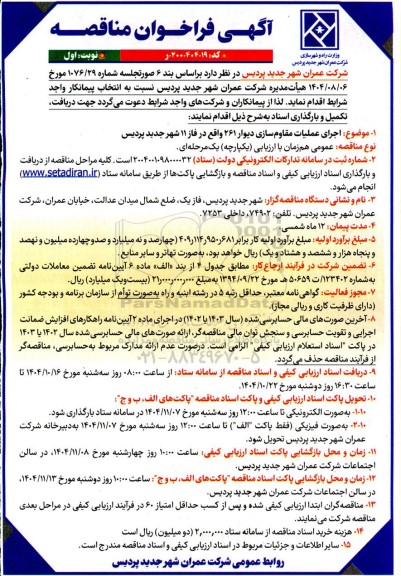 آگهی فراخوان مناقصه
وزارت راه و شهرسازی
شرکت عمران شهر جدید پردیس
کد: ۲۰۰۴۰۴۰۱۹-ر
نوبت: اول
شرکت عمران شهر جدید پردیس در نظر دارد براساس بند ۶ صورتجلسه شماره ۱۰۷۶/۲۹ مورخ
۱۴۰۴/۰۸/۰۶ هیأت‌مدیره شرکت عمران شهر جدید پردیس نسبت به انتخاب پیمانکار واجد
شرایط اقدام نماید. لذا از پیمانکاران و شرکت‌های واجد شرایط دعوت می‌گردد جهت دریافت،
تکمیل و بارگذاری اسناد به‌شرح ذیل اقدام نمایند:
۱- موضوع: اجرای عملیات مقاوم‌سازی دیوار ۲۶۱ واقع در فاز ۱۱ شهر جدید پردیس
نوع مناقصه: عمومی هم‌زمان با ارزیابی (یکپارچه) یک‌مرحله‌ای.
۲- شماره ثبت در سامانه تدارکات الکترونیکی دولت (ستاد) است. کلیه مراحل مناقصه از دریافت
و بارگذاری اسناد ارزیابی کیفی و اسناد مناقصه و بازگشایی پاکت‌ها از طریق سامانه ستاد (www.setadiran.ir)
انجام می‌شود.
۳- نام و نشانی دستگاه مناقصه‌گزار: شهر جدید پردیس، فاز یک، ضلع شمال میدان عدالت، خیابان عمران، شرکت
عمران شهر جدید پردیس. تلفن: ۷۴۹۰۲، داخلی ۷۲۵۳.
۴- مدت پیمان: ۱۲ ماه شمسی
۵- مبلغ برآورد اولیه: مبلغ برآورد اولیه کار برابر (چهارصد و نه میلیارد و صدوچهارده میلیون و نهصد
و پنجاه هزار و ششصد و هشتاد و یک) ریال خواهد بود، به‌صورت تهاتر و سایر منابع.
۶- تضمین شرکت در فرآیند ارجاع کار: مطابق جدول ۴ از بند «الف» ماده ۶ آیین‌نامه تضمین معاملات دولتی
به‌شماره ۱۲۳۴۰۲/ت ۵۰۶۵۹ هـ مورخ ۱۳۹۴/۰۹/۲۲ به مبلغ ۲۱٫۰۰۰٫۰۰۰٫۰۰۰ (بیست‌ویک میلیارد) ریال.
۷- مجوز فعالیت: گواهی‌نامه معتبر، حداقل رتبه ۵ در رشته ابنیه و راه به‌صورت توأم از سازمان برنامه و بودجه کشور
(دارای ظرفیت کاری و ریالی مجاز).
۸- آخرین صورت‌های مالی حسابرسی‌شده (سال ۱۴۰۳ یا ۱۴۰۲) در اجرای ماده ۲ آیین‌نامه راهکارهای افزایش ضمانت
اجرایی و تقویت حسابرسی و سنجش توان مالی مناقصه‌گر، ارائه صورت‌های مالی حسابرسی‌شده سال ۱۴۰۲ یا ۱۴۰۳
در پاکت "اسناد استعلام ارزیابی کیفی" الزامی است. درصورت عدم ارائه مدارک مربوط به‌حسابرسی، مناقصه‌گر
از فرآیند مناقصه حذف می‌گردد.
۹- دریافت اسناد ارزیابی کیفی و اسناد مناقصه از سامانه ستاد: از ساعت ۰۸:۰۰ روز سه‌شنبه مورخ ۱۴۰۴/۱۰/۱۶ تا
ساعت ۱۶:۳۰ روز دوشنبه مورخ ۱۴۰۴/۱۰/۲۲.
۱۰- تحویل پاکت اسناد ارزیابی کیفی و پاکت اسناد مناقصه "پاکت‌های الف، ب و ج":
۱-۱۰- به‌صورت الکترونیکی تا ساعت ۱۲:۰۰ روز سه‌شنبه مورخ ۱۴۰۴/۱۱/۰۷ در سامانه ستاد بارگذاری شود.
۲-۱۰- به‌صورت فیزیکی (فقط پاکت "الف") تا ساعت ۱۲:۰۰ روز سه‌شنبه مورخ ۱۴۰۴/۱۱/۰۷ به‌دبیرخانه شرکت
عمران شهر جدید پردیس تحویل شود.
۱۱- زمان و محل بازگشایی پاکت اسناد ارزیابی کیفی: ساعت ۱۰:۰۰ روز چهارشنبه مورخ ۱۴۰۴/۱۱/۰۸، در سالن
اجتماعات شرکت عمران شهر جدید پردیس.
۱۲- زمان و محل بازگشایی پاکت اسناد مناقصه "پاکت‌های الف، ب و ج": ساعت ۱۰:۰۰ روز دوشنبه مورخ ۱۴۰۴/۱۱/۱۳،
در سالن اجتماعات شرکت عمران شهر جدید پردیس.
۱۳- مناقصه‌گران ابتدا ارزیابی کیفی شده و پس از کسب حداقل امتیاز ۶۰ در فرآیند ارزیابی کیفی در مراحل بعدی
مناقصه شرکت می‌نمایند.
۱۴- هزینه خرید اسناد مناقصه از سامانه ستاد ۲,۰۰۰,۰۰۰ (دو میلیون) ریال است
۱۵- سایر اطلاعات و جزئیات مربوط در اسناد ارزیابی کیفی و اسناد مناقصه مندرج است.
روابط عمومی شرکت عمران شهر جدید پردیس